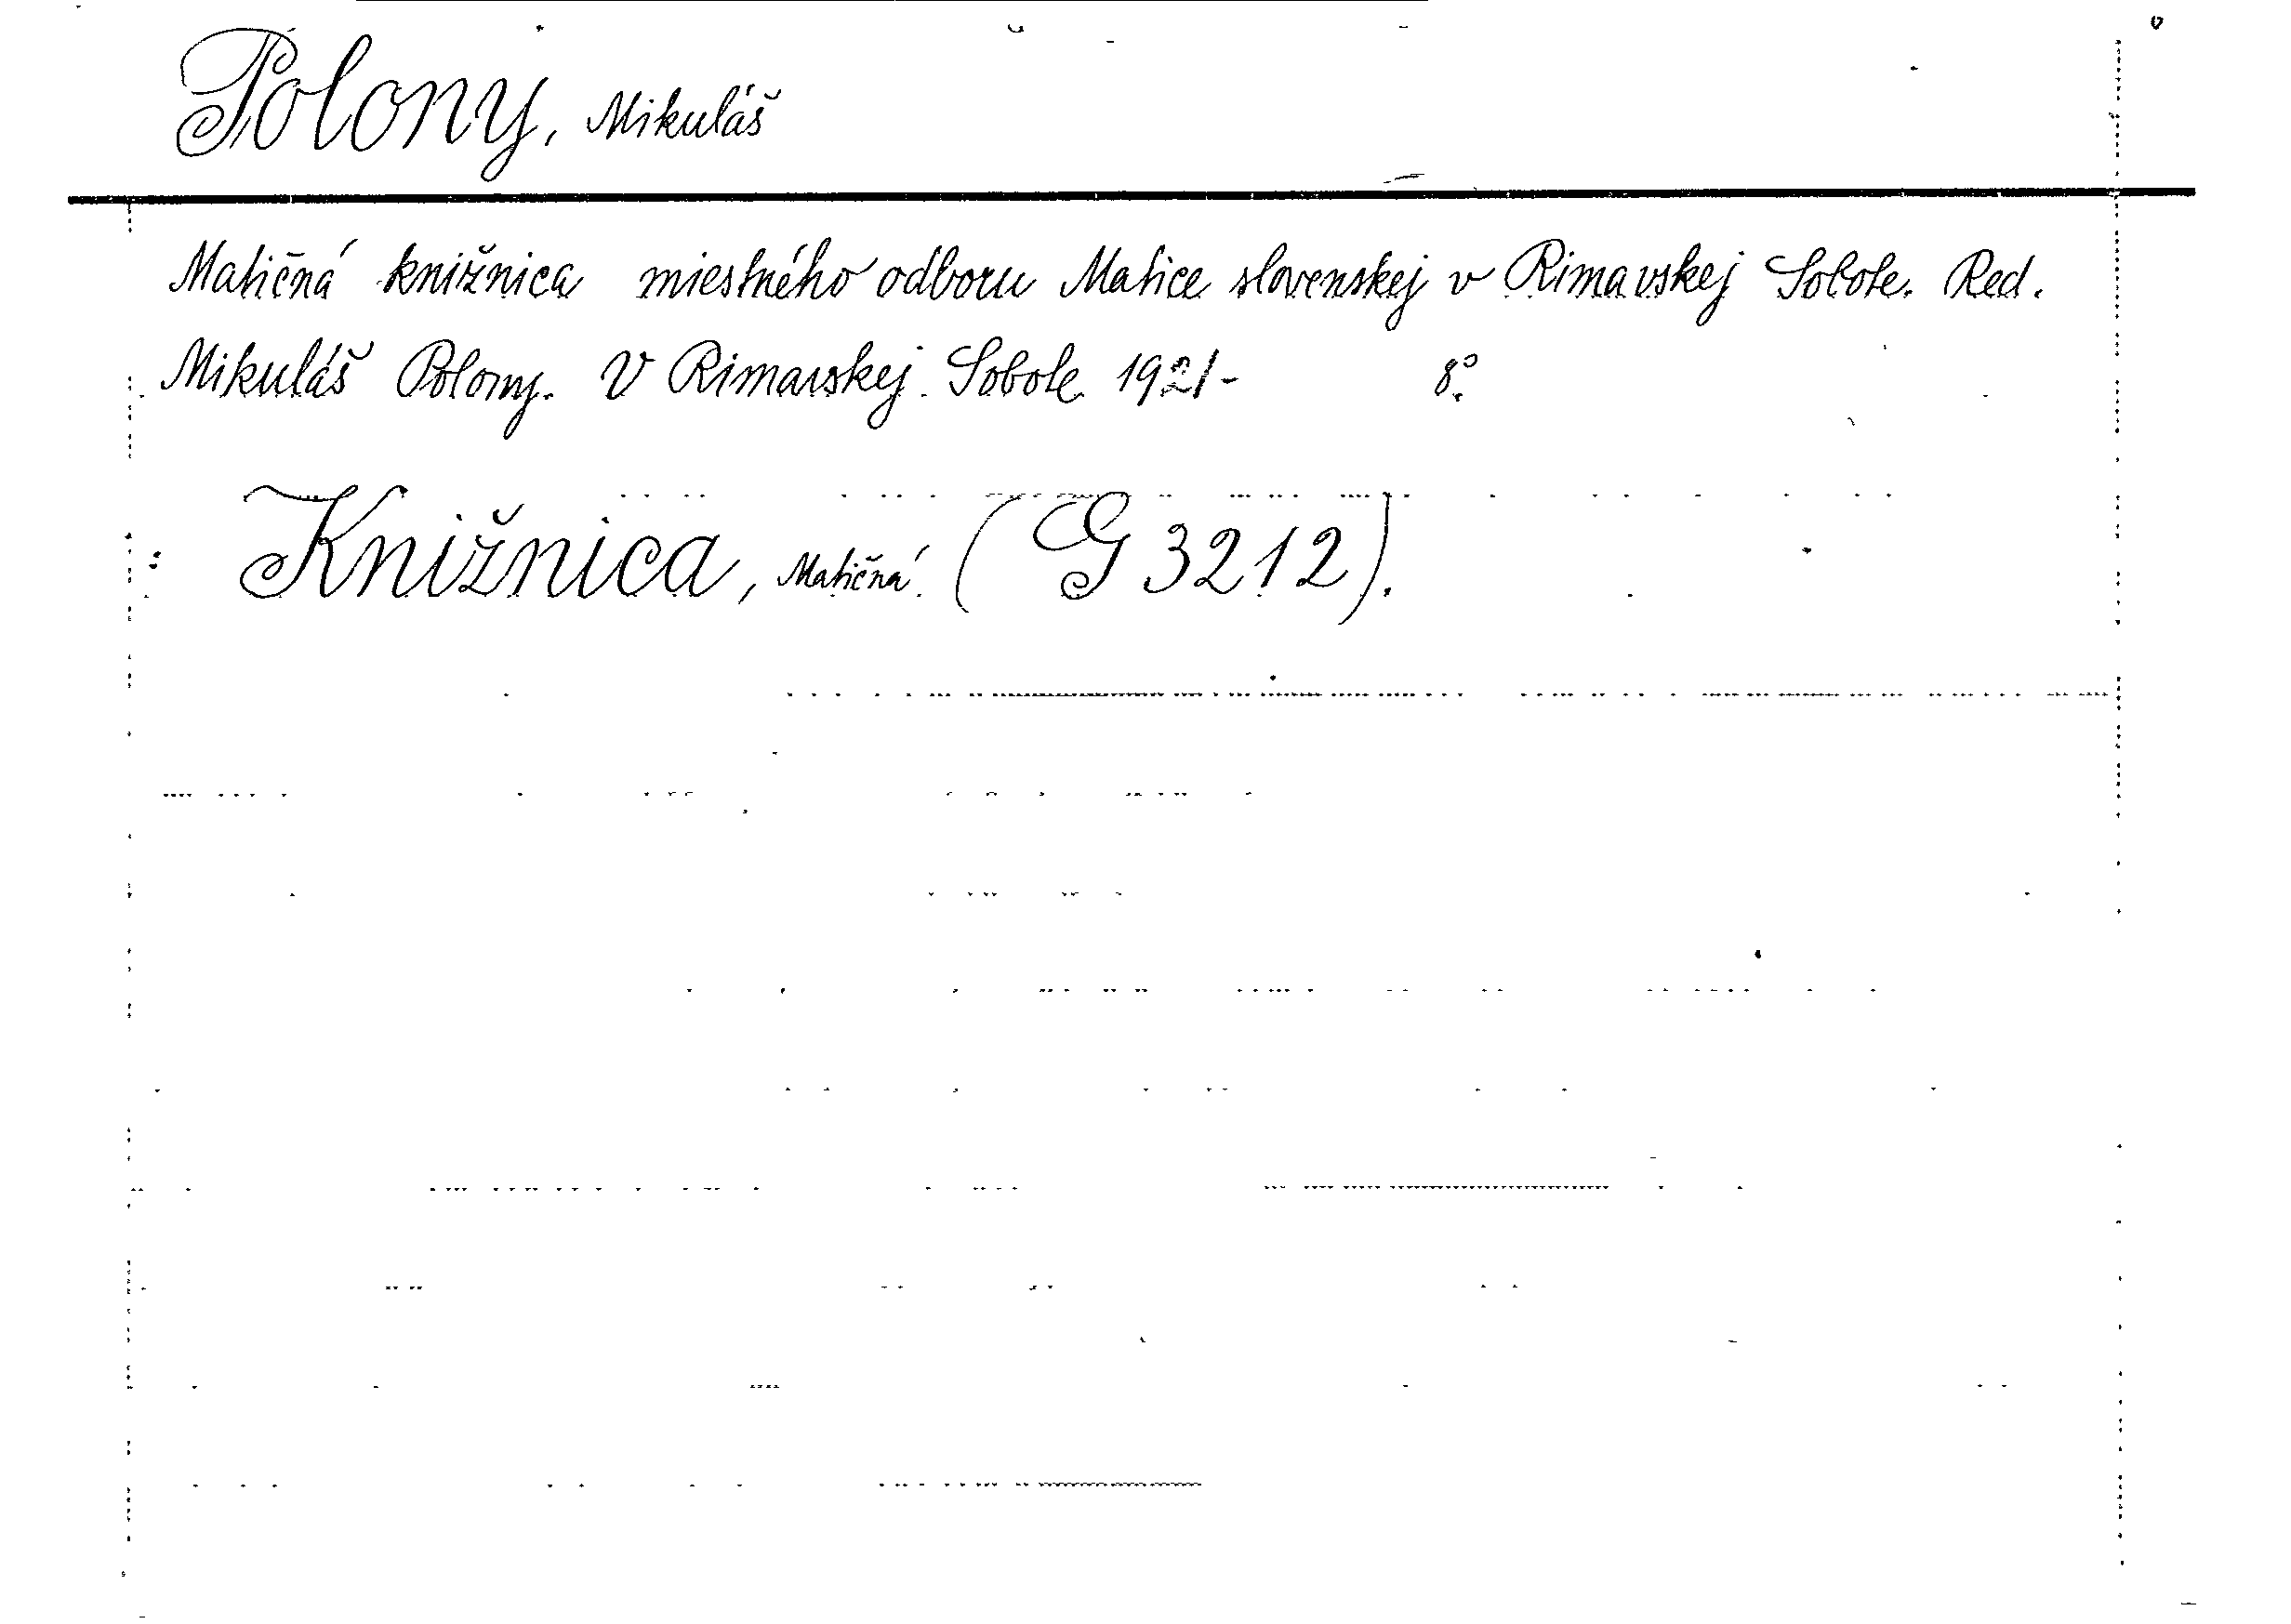 Polony, Mikuláš
Matičná knižnica miestného odboru Matice slovenskej v Rimavskej Sobote. Red.
Mikuláš Polony. V Rimavskej Sobote 1921- 8°.
Knižnica, Matičná. (G 3212).